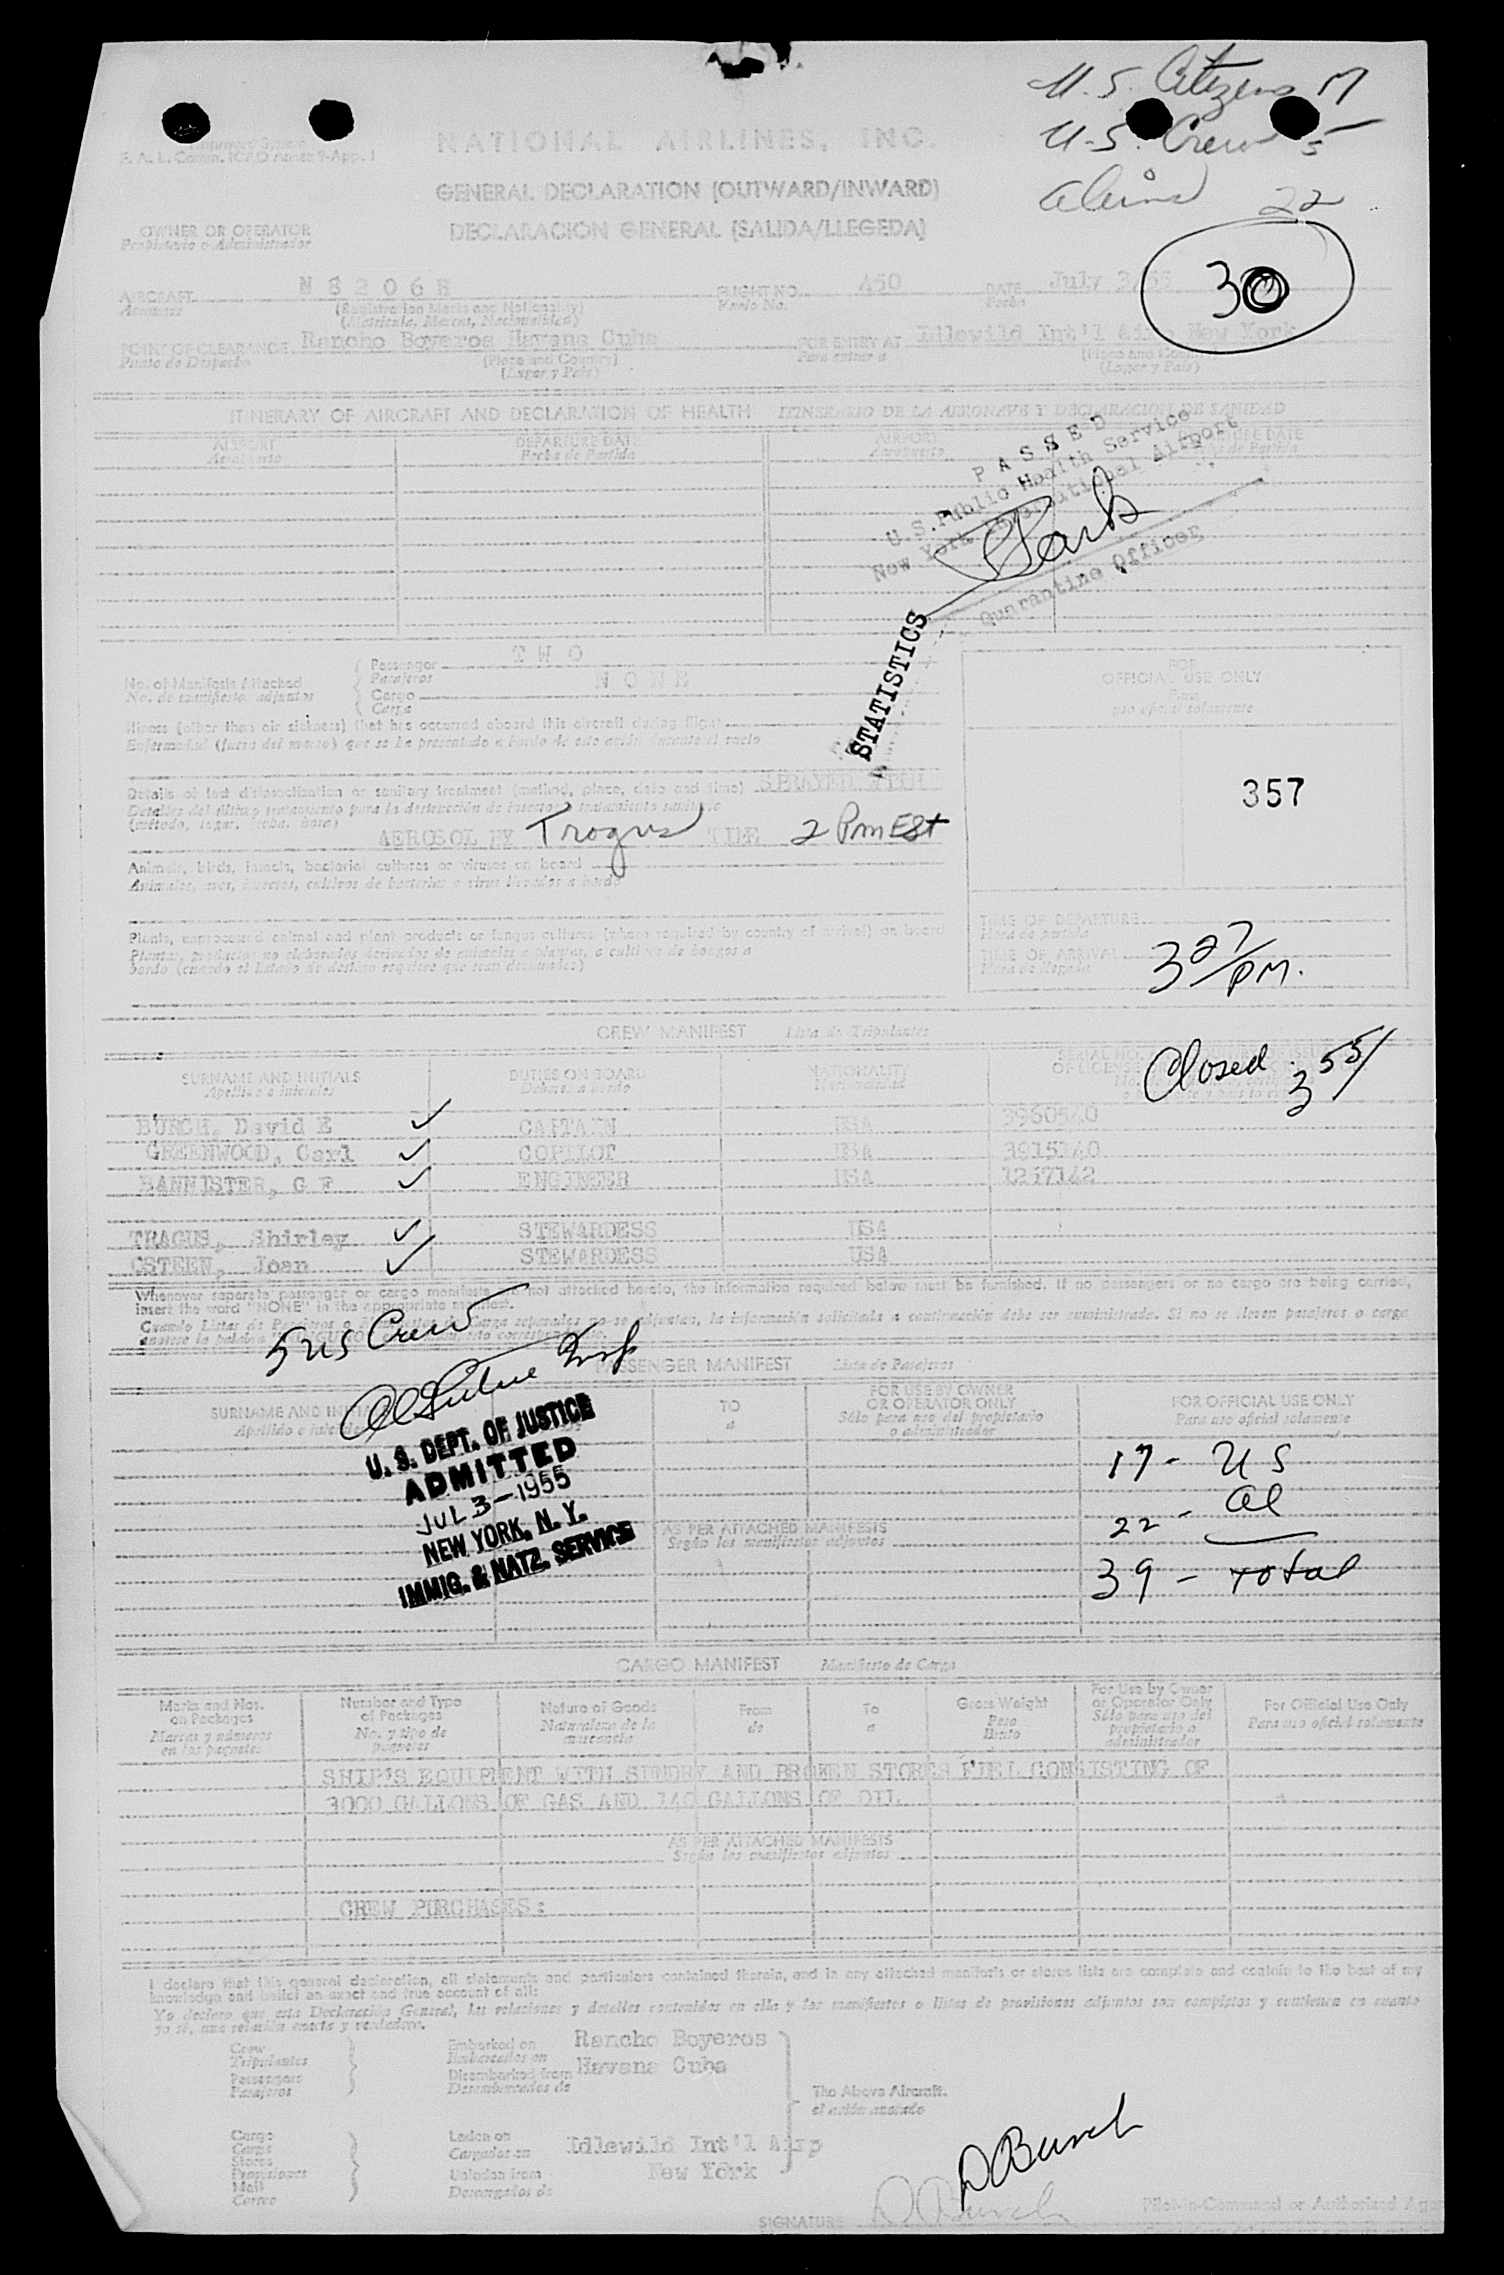 U.S. Citizens 17
U.S. Crew 5
Aliens 22
30
F. A. L. Comm. ICAO Annex 9-App. 1
NATIONAL AIRLINES, INC.
GENERAL DECLARATION (OUTWARD/INWARD)
DECLARACION GENERAL (SALIDA/LLEGEDA)
OWNER OR OPERATOR
Propietario o Administrador
AIRCRAFT N 8 2 0 6 H FLIGHT NO. 450 DATE July 3/55
Aeronave (Registration Marks and Nationality) Vuelo No. Fecha
(Matricula, Marcas, Nacionalidad)
POINT OF CLEARANCE Rancho Boyeros Havana Cuba FOR ENTRY AT Idlewild Int'l Airp New York
Punto de Despacho (Place and Country) Para entrar a (Place and Country)
(Lugar y Pais) (Lugar y Pais)
ITINERARY OF AIRCRAFT AND DECLARATION OF HEALTH ITINERARIO DE LA AERONAVE Y DECLARACION DE SANIDAD
AIRPORT DEPARTURE DATE AIRPORT DEPARTURE DATE
Aeropuerto Fecha de Partida Aeropuerto Fecha de Partida
PASSED
U.S. Public Health Service
New York International Airport
Quarantine Officer
STATISTICS
No. of Manifests Attached Passenger T W O
No. de manifiestos adjuntos Pasajeros
Cargo N O N E
Carga
Illness (other than air sickness) that has occurred aboard this aircraft during flight
Enfermedad (fuera del mareo) que se ha presentado a bordo de este avión durante el vuelo
Details of last disinsectization or sanitary treatment (method, place, date and time) SPRAYED WITH
Detalles del último tratamiento para la destrucción de insectos o tratamiento sanitario
(método, lugar, fecha, hora)
AEROSOL BY Tragus TIME 2 Pm EST
Animals, birds, insects, bacterial cultures or viruses on board
Animales, aves, insectos, cultivos de bacterias o virus llevados a bordo
Plants, unprocessed animal and plant products or fungus cultures (where required by country of arrival) on board
Plantas, productos no elaborados derivados de animales o plantas, o cultivo de hongos a
bordo (cuando el Estado de destino requiere que sean declarados)
FOR
OFFICIAL USE ONLY
Para
uso oficial solamente
357
TIME OF DEPARTURE
Hora de partida
TIME OF ARRIVAL 3 27/PM.
Hora de llegada
CREW MANIFEST Lista de Tripulantes
Closed 3 55/
SURNAME AND INITIALS DUTIES ON BOARD NATIONALITY
Apellido e iniciales Deberes a bordo Nacionalidad
BURCH, David E ✓ CAPTAIN USA 3960540
GREENWOOD, Carl ✓ COPILOT USA 3915140
BANNISTER, G F ✓ ENGINEER USA 1217142
TRAGUS, Shirley ✓ STEWARDESS USA
OSTEEN, Joan ✓ STEWARDESS USA
Whenever separate passenger or cargo manifests are not attached hereto, the information required below must be furnished. If no passengers or no cargo are being carried,
insert the word "NONE" in the appropriate manifest.
5 US Crew
PASSENGER MANIFEST Lista de Pasajeros
SURNAME AND INITIALS TO FOR USE BY OWNER OR OPERATOR ONLY FOR OFFICIAL USE ONLY
Apellido e iniciales a Sólo para uso del propietario o administrador Para uso oficial solamente
U. S. DEPT. OF JUSTICE
ADMITTED
JUL 3 - 1955
NEW YORK, N. Y.
IMMIG. & NATZ. SERVICE
17 - US
22 - al
39 - Total
AS PER ATTACHED MANIFESTS
Según los manifiestos adjuntos
CARGO MANIFEST Manifiesto de Carga
Marks and Nos. on Packages Number and Type of Packages Nature of Goods From To Gross Weight For Use by Owner or Operator Only For Official Use Only
Marcas y números en los paquetes No. y tipo de paquetes Naturaleza de la mercancia de a Peso Bruto Sólo para uso del propietario o administrador Para uso oficial solamente
SHIP'S EQUIPMENT WITH SUNDRY AND BROKEN STORES FUEL CONSISTING OF
3000 GALLONS OF GAS AND 140 GALLONS OF OIL
AS PER ATTACHED MANIFESTS
Según los manifiestos adjuntos
CREW PURCHASES:
I declare that this general declaration, all statements and particulars contained therein, and in any attached manifests or stores lists are complete and contain to the best of my
knowledge and belief an exact and true account of all:
Yo declaro que esta Declaración General, las relaciones y detalles contenidos en ella y los manifiestos o listas de provisiones adjuntos son completos y contienen en cuanto
yo sé, una relación exacta y verdadera.
Crew Embarked on Rancho Boyeros
Tripulantes Embarcados en
Passengers Disembarked from Havana Cuba
Pasajeros Desembarcados de
The Above Aircraft.
el avión anotado
Cargo Laden on Idlewild Int'l Airp
Carga Cargados en
Stores New York
Provisiones Unladen from
Mail Descargados de
Correo
D Burch
D Burch
SIGNATURE
Pilot-in-Command or Authorized Agent